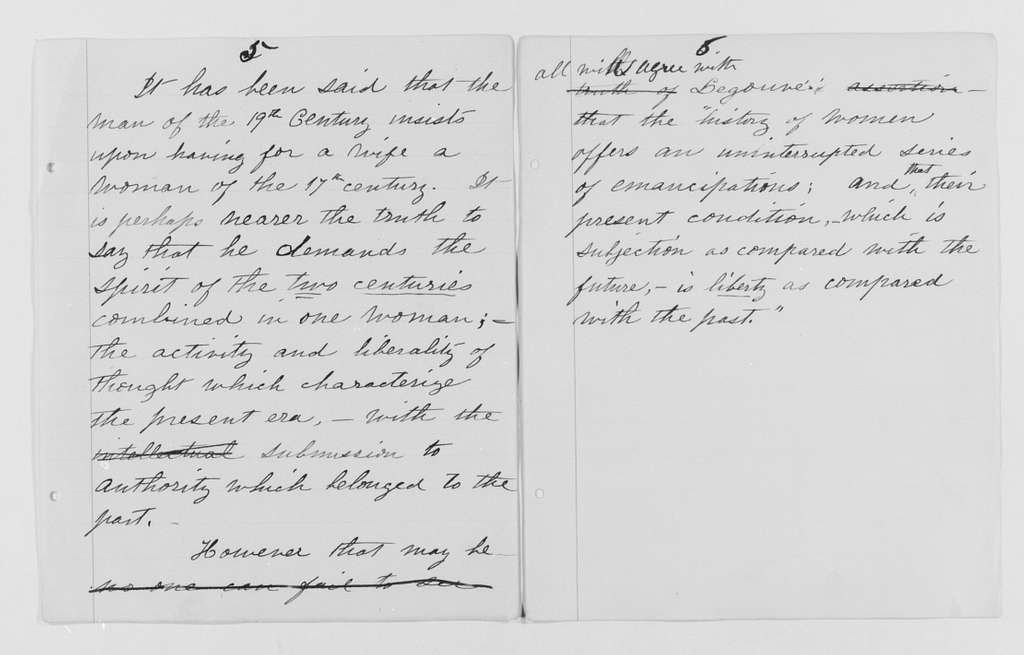 5
It has been said that the
man of the 19th Century insists
upon having for a wife a
woman of the 17th century. It
is perhaps nearer the truth to
say that he demands the
spirit of the two centuries
combined in one woman; —
the activity and liberality of
thought which characterize
the present era, — with the
intellectual submission to
authority which belonged to the
past. —
However that may be
no one can fail to see
6
all will agree with
truth of Legouvé's assertion —
that the "history of women
offers an uninterrupted series
of emancipations; and that their
present condition, — which is
subjection as compared with the
future, — is liberty as compared
with the past."